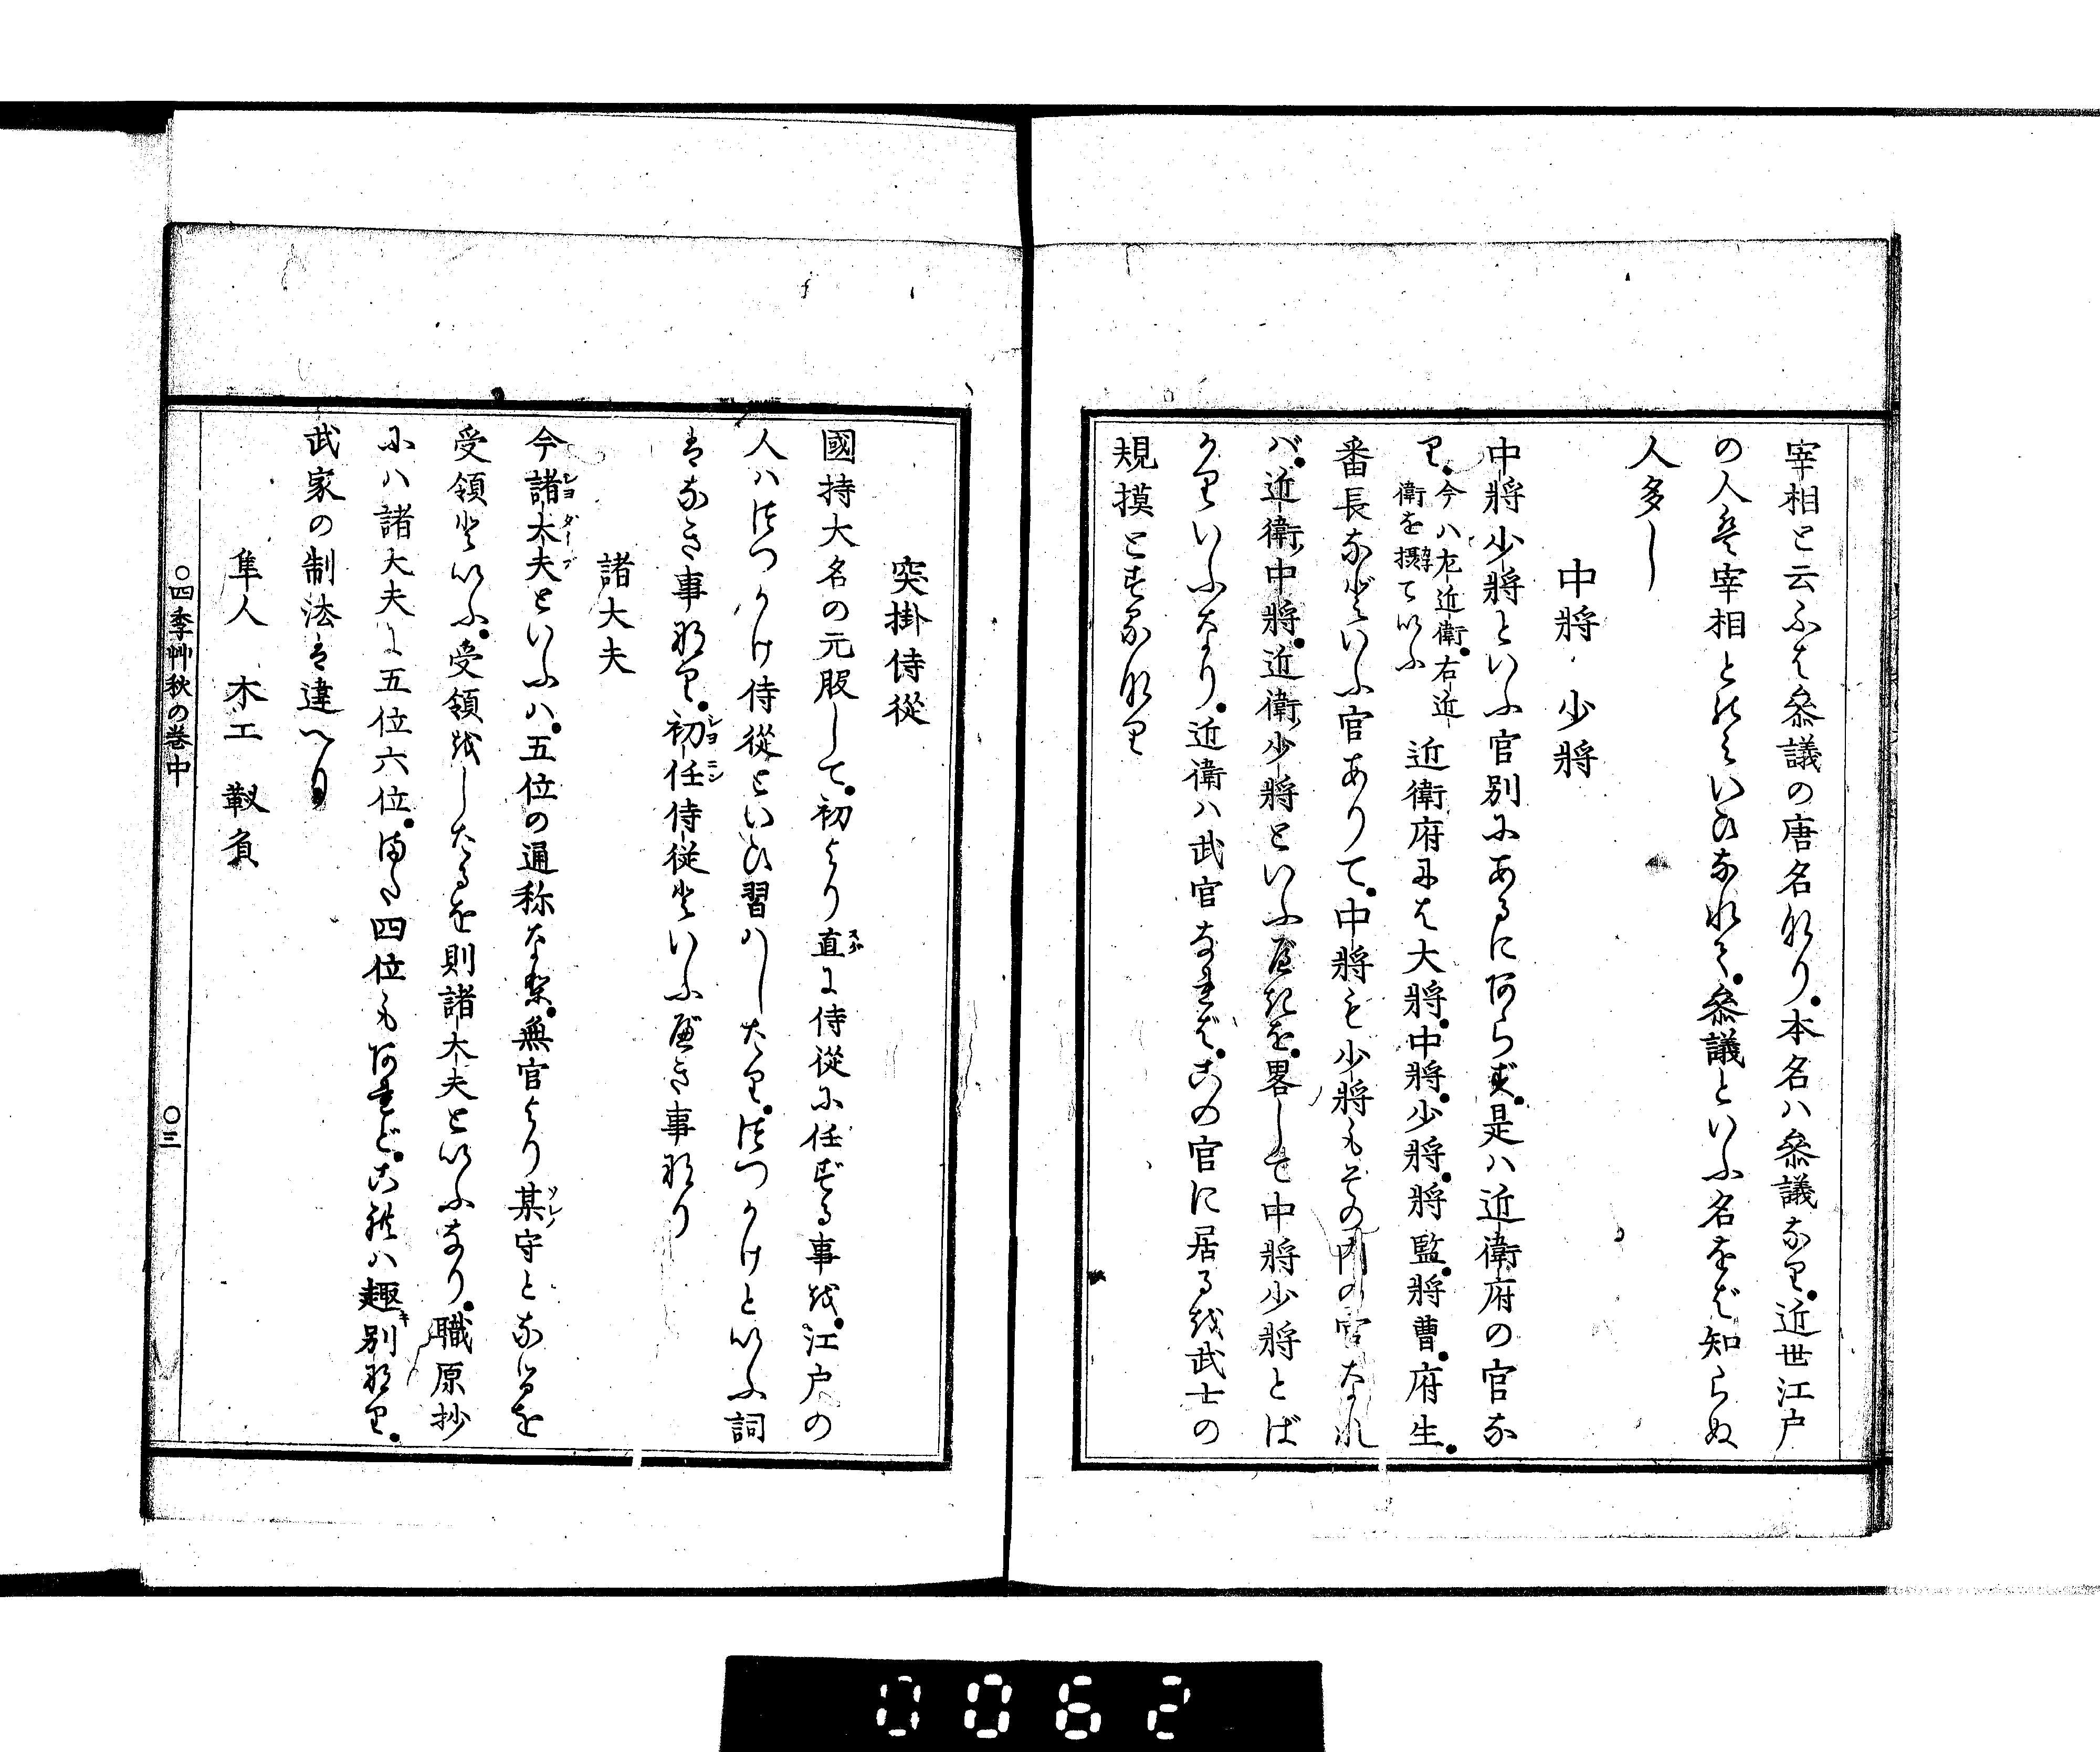 宰相と云ふは参議の唐名なり。本名ハ参議なり。近世江戸
の人は宰相とのみいひなれて。参議といふ名をば知らぬ
人多し
中將 少將
中將少將といふ官別にあるにあらず。是ハ近衛府の官な
り。今ハ左近衛。右近衛を撰ていふ 近衛府には大將。中將。少將。將監。將曹。府生。
番長などいふ官ありて。中將も少將もその内の官なれ
バ。近衛中將。近衛少將といふべきを。畧して中將少將とば
かりいふなり。近衛ハ武官なれば。この官に居るを武士の
規摸とするなり
突掛侍從
國持大名の元服して。初より直に侍從に任ずる事を。江戸の
人ハつつかけ侍從といひ習ハしたり。つつかけといふ詞
はなき事なり。初任侍従といふべき事なり
諸大夫
今諸大夫といふハ。五位の通称なり。無官より某守となるを
受領といふ。受領をしたるを則諸大夫といふなり。職原抄
にハ諸大夫に五位六位。また四位もあれど。これハ趣別なり。
武家の制法は違へり
隼人 木工 靱負
○四季艸秋の巻中 ○三
0062